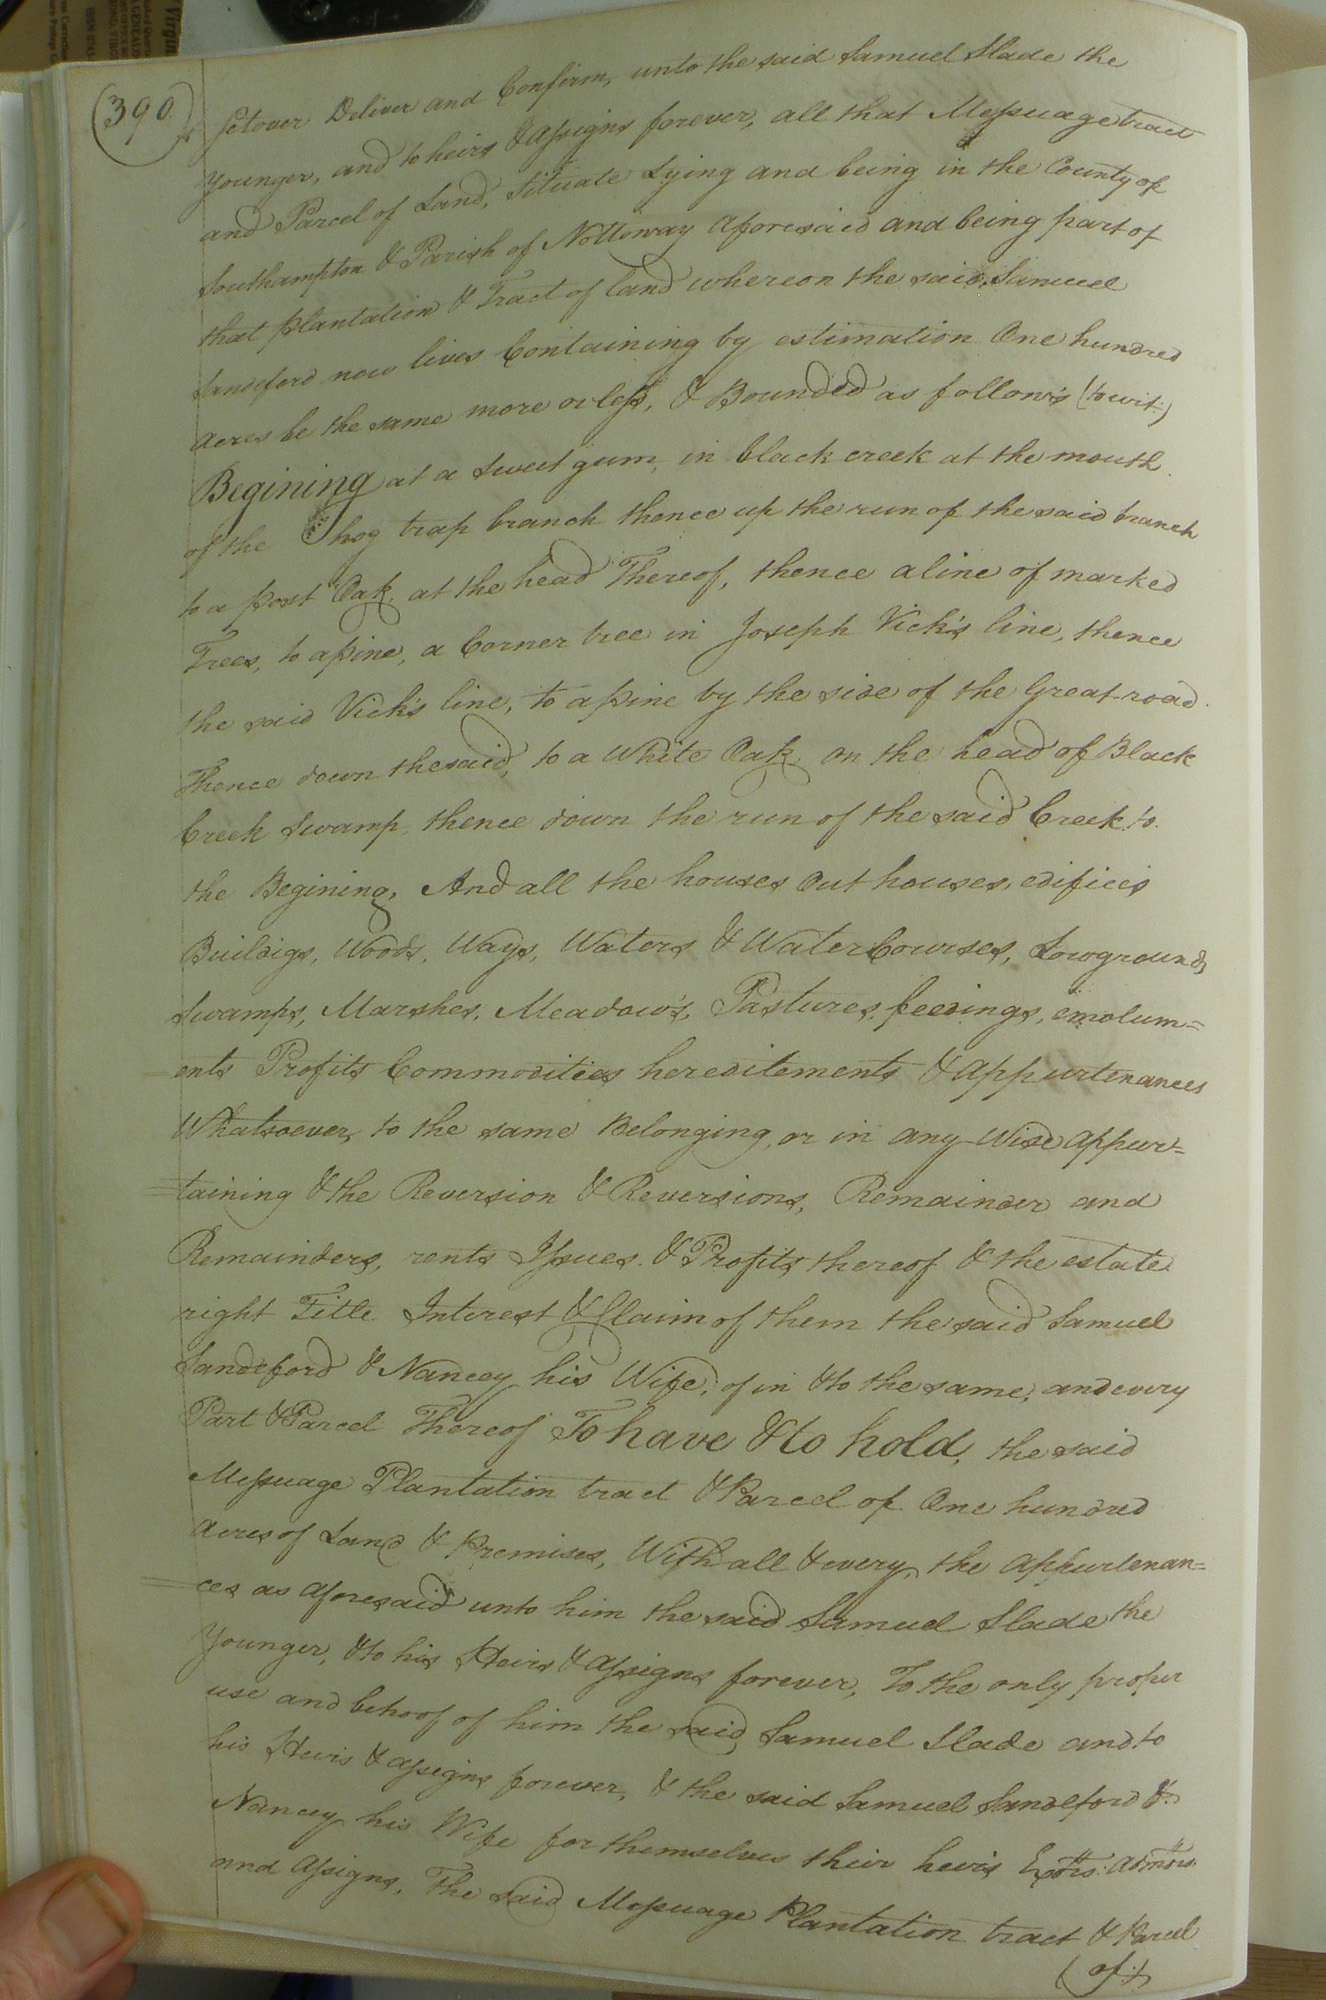 (390)
Setover Deliver and Confirm, unto the said Samuel Slade the
Younger, and to heirs & assigns forever, all that Messuage tract
and Parcel of Land, Situate Lying and being in the County of
Southampton & Parish of Nottoway aforesaid and being part of
that plantation & Tract of land whereon the said Samuel
Sandeford now lives Containing by estimation One hundred
acres be the same more or less, & Bounded as follows (to wit:)
Begining at a Sweet gum, in black creek at the mouth
of the hog trap branch thence up the run of the said branch
to a post Oak, at the head Thereof, thence a line of marked
Trees, to a pine, a Corner tree in Joseph Vick's line, thence
the said Vick's line, to a pine by the side of the Great road.
Thence down the said, to a White Oak on the head of Black
Creek Swamp, thence down the run of the said Creek to
the Begining, And all the houses Out houses, edifices
Buildigs, Woods, Ways, Waters & Water Courses, Lowgrounds
Swamps, Marshes, Meadow's, Pastures, feedings, emolum=
ents Profits Commodities hereditements & appurtenances
Whatsoever, to the same Belonging, or in any Wise appur=
=taining & the Reversion & Reversions, Remainder and
Remainders, rents Issues & Profits thereof & the estate
right Title Interest & Claim of them the said Samuel
Sandeford & Nancey his Wife, of in & to the same, and every
Part & Parcel Thereof To have & to hold, the said
Messuage Plantation tract & Parcel of One hundred
acres of Land & Premises, With all & every the appurtenan=
=ces as aforesaid unto him the said Samuel Slade the
Younger, & to his Heirs & assigns forever, To the only proper
use and behoof of him the said Samuel Slade and to
his Heirs & assigns forever, & the said Samuel Sandeford &
Nancey his Wife for themselves their heirs Exōrs: admōrs.
and assigns, The said Messuage Plantation tract & Parcel
(of:)